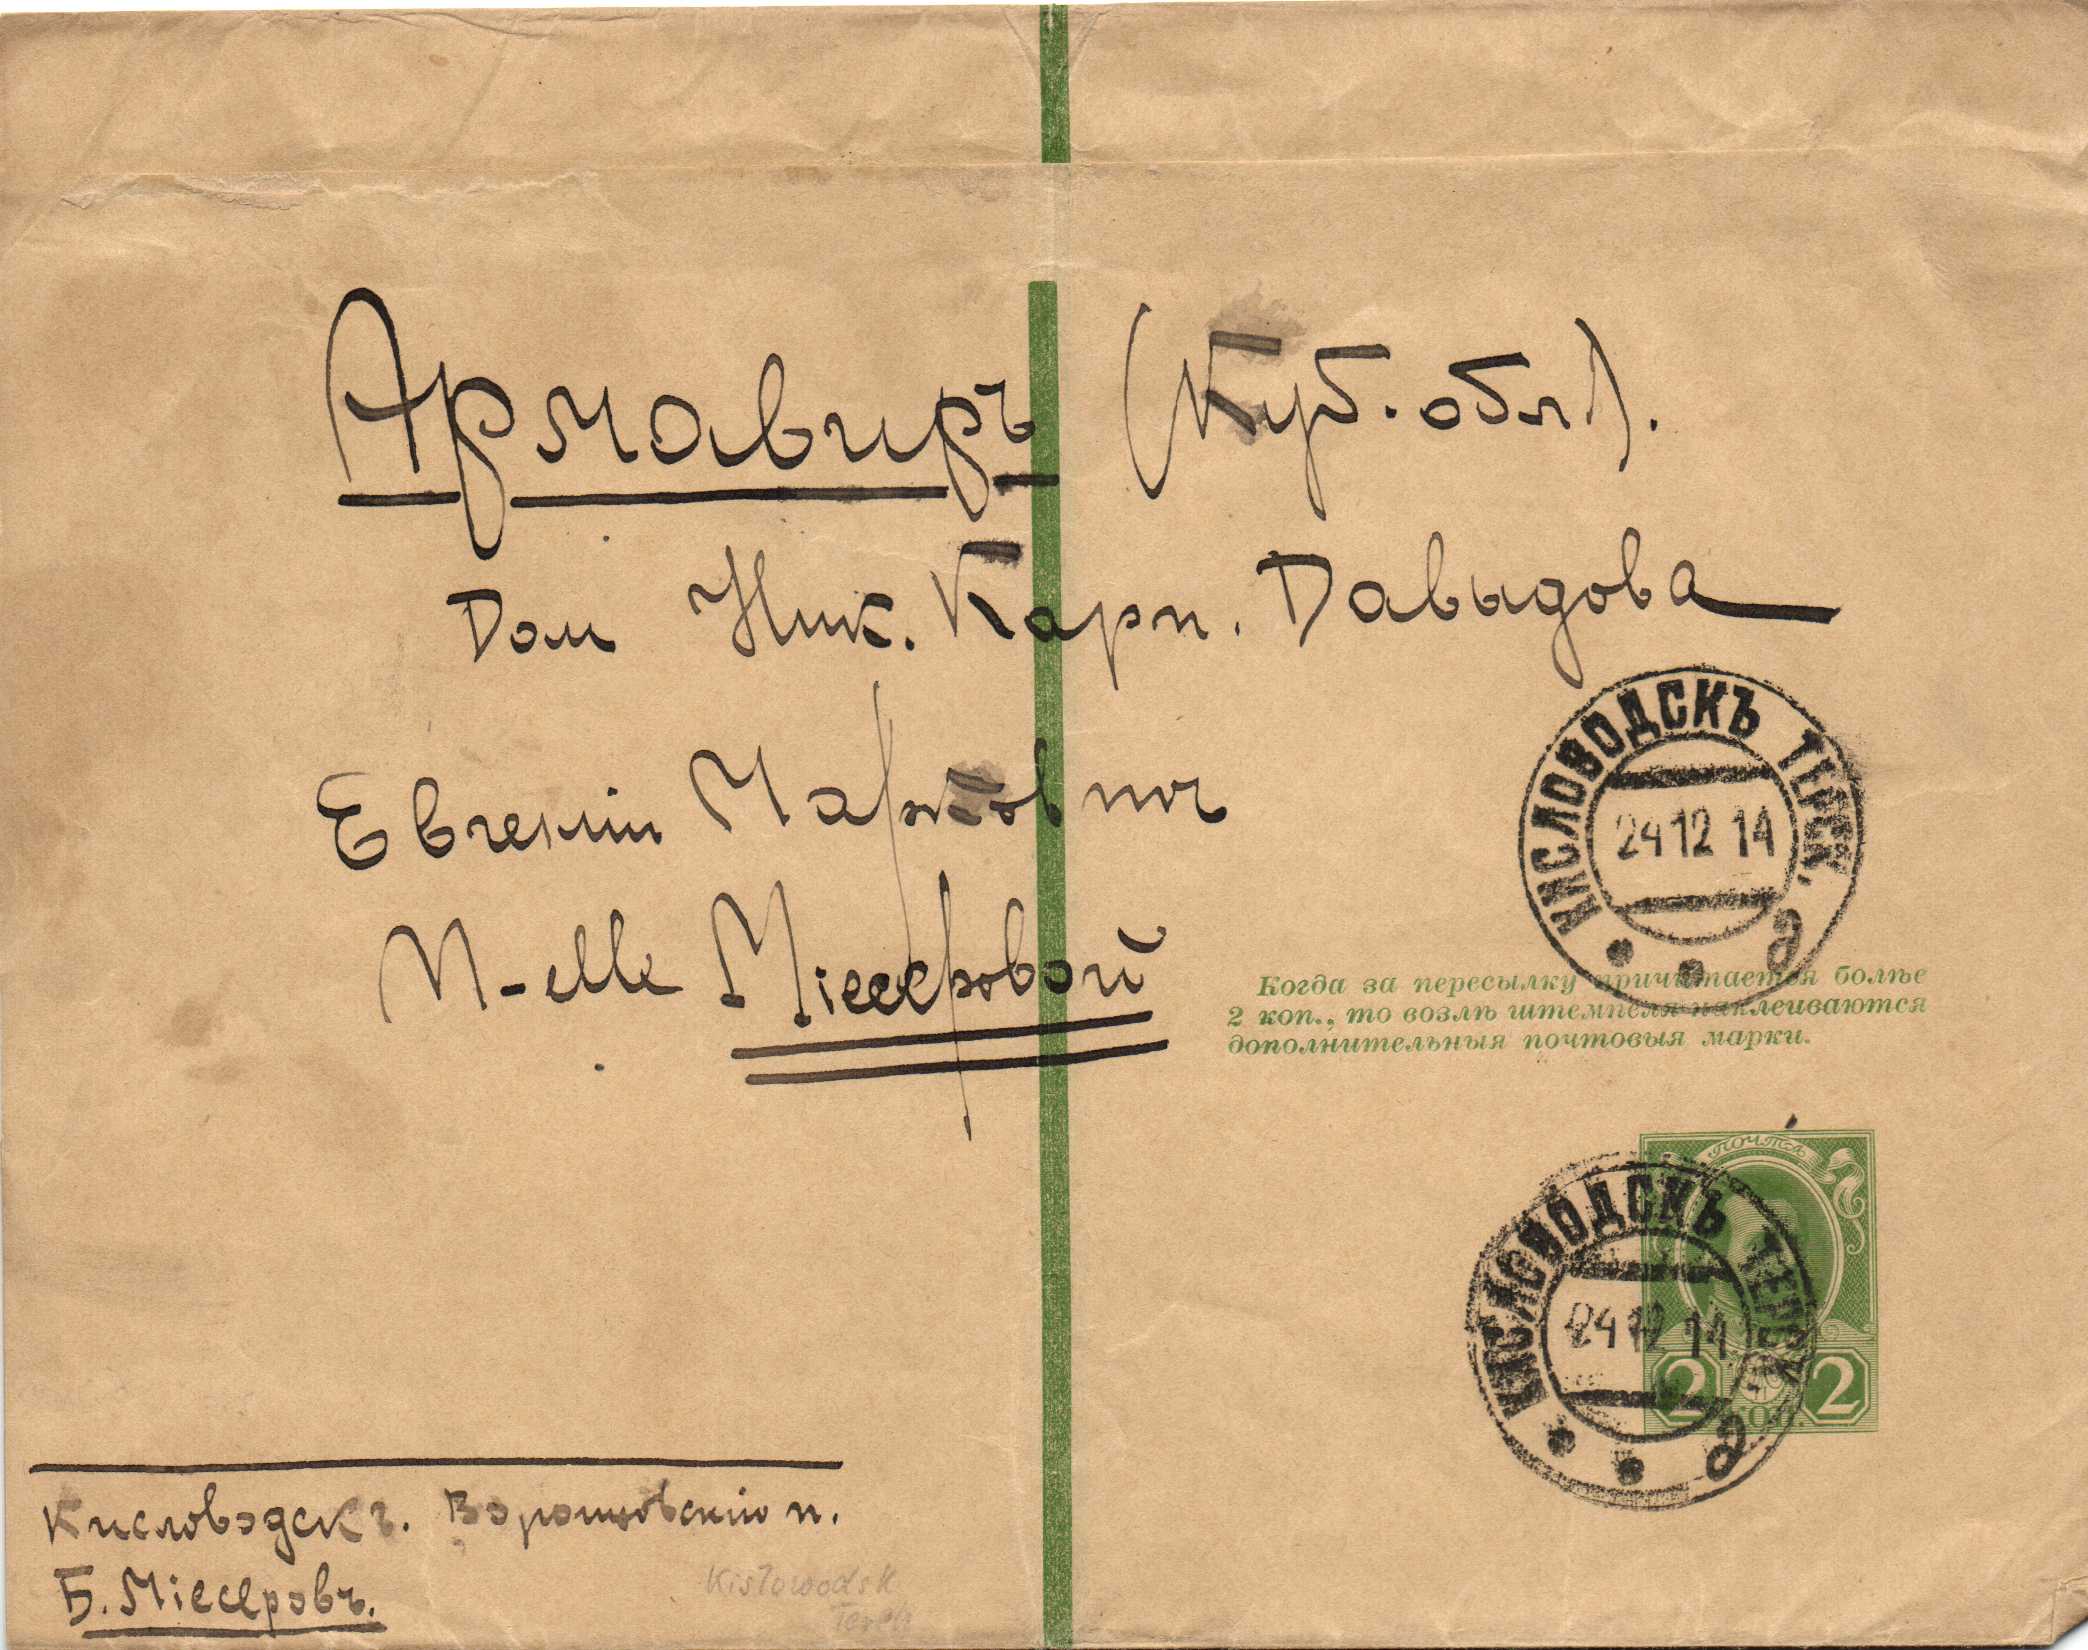 Армавиръ (Куб. обл.).
Дом Ник. Карп. Давыдова
Евгеніи Марковнъ
M-elle Міесеровой
КИСЛОВОДСКЪ ТЕРСК.
24 12 14
Когда за пересылку причитается болѣе
2 коп., то возлѣ штемпеля наклеиваются
дополнительныя почтовыя марки.
ПОЧТА
КИСЛОВОДСКЪ ТЕРСК.
24 12 14
2 КОП. 2
Кисловодскъ. Воронцовскій п.
Б. Міесеровъ.
Kislowodsk
Terek